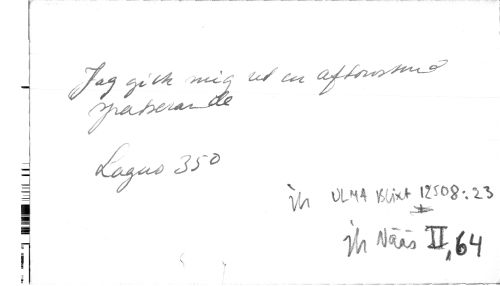 Jag gick mig ut en aftonstund
spatserande
Lagus 350
jh ULMA Blixt 12508:23
jh Nääs II, 64